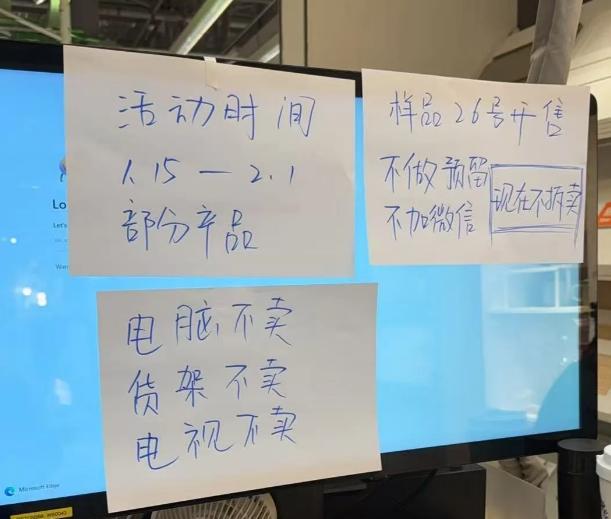 活动时间
1.15-2.1
部分产品
样品26号开售
不做预留
不加微信
现在不拆卖
电脑不卖
货架不卖
电视不卖
Lo
Let's
Microsoft Edge